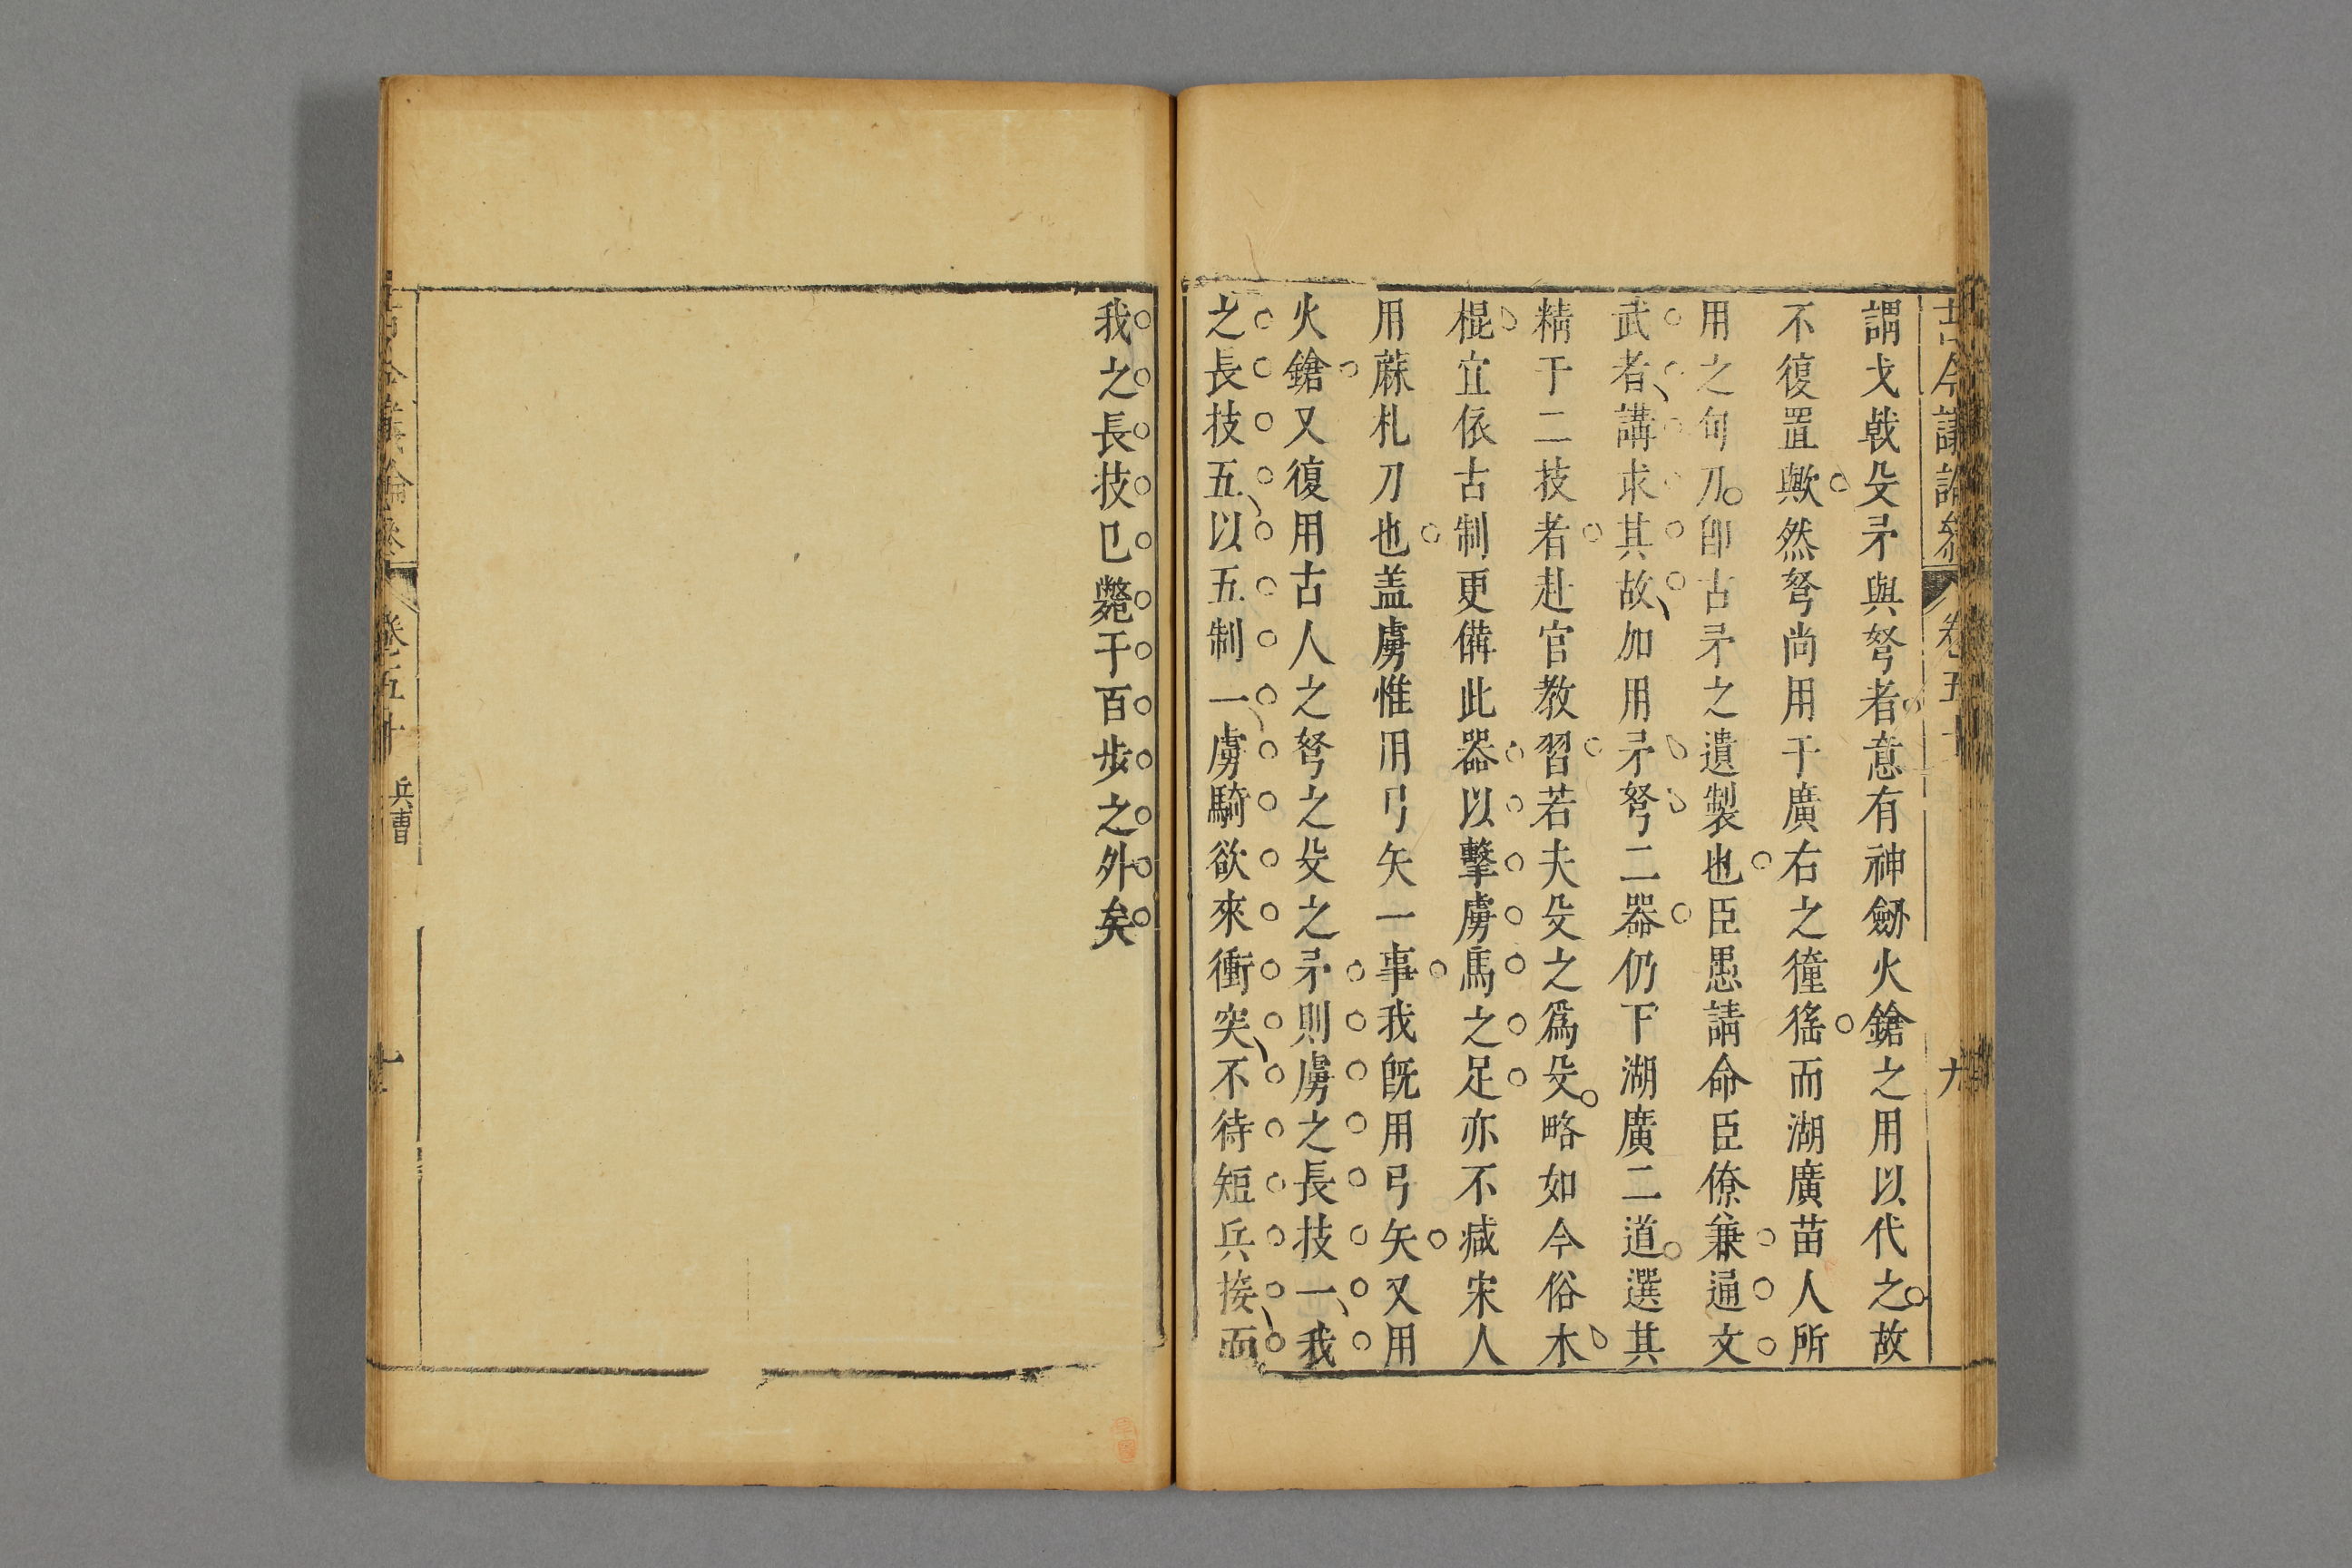 古今議論參 卷五十 九
謂戈戟殳矛與弩者意有神劒火鎗之用以代之故
不復置歟然弩尚用于廣右之獞猺而湖廣苗人所
用之句刀卽古矛之遺製也臣愚請命臣僚兼通文
武者講求其故加用矛弩二器仍下湖廣二道選其
精于二技者赴官教習若夫殳之爲殳略如今俗木
棍宜依古制更備此器以擊虜馬之足亦不减宋人
用蔴札刀也盖虜惟用弓矢一事我旣用弓矢又用
火鎗又復用古人之弩之殳之矛則虜之長技一我
之長技五以五制一虜騎欲來衝突不待短兵接而
我之長技已斃于百步之外矣
卷五十 兵曹